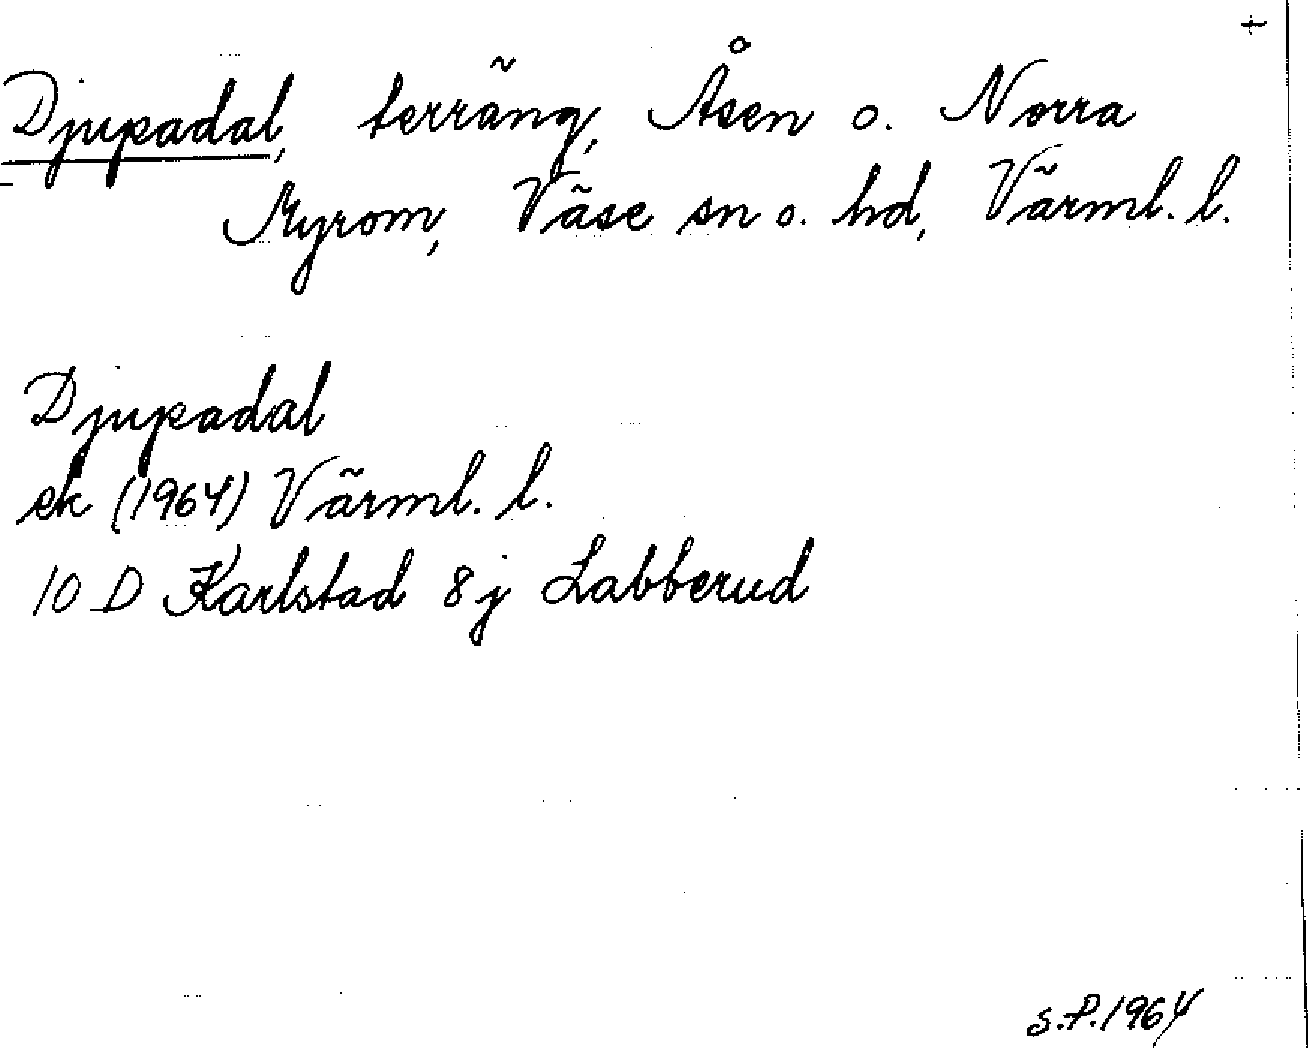 +
Djupadal, terräng, Åsen o. Norra
Myrom, Väse sn o. hd, Värml. l.
Djupadal
ek (1964) Värml. l.
10 D Karlstad 8 j Labberud
S.P. 1964